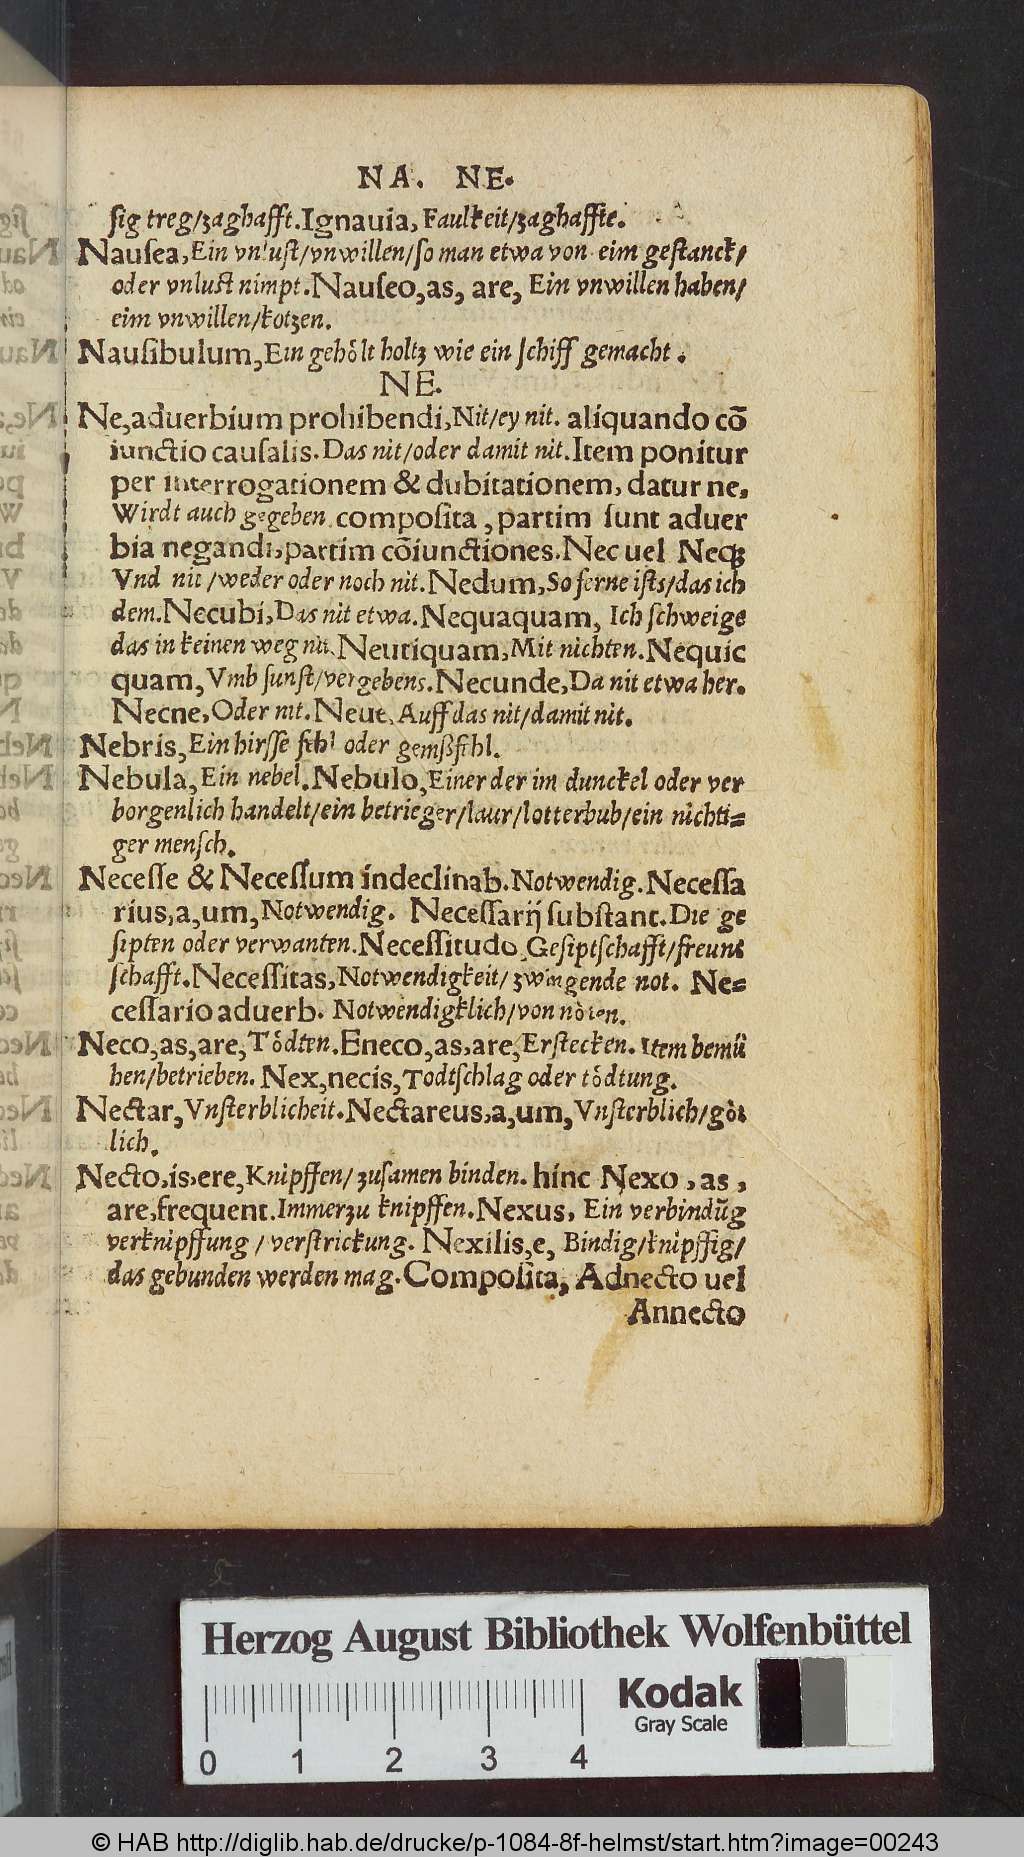 NA. NE.
sig treg/zaghafft. Ignauia, Faulkeit/zaghaffte.
Nausea, Ein vnlust/vnwillen/so man etwa von eim gestanck/
oder vnlust nimpt. Nauseo, as, are, Ein vnwillen haben/
eim vnwillen/kotzen.
Nausibulum, Ein gehölt holtz wie ein schiff gemacht.
NE.
Ne, aduerbium prohibendi, Nit/ey nit. aliquando cõ
iunctio causalis. Das nit/oder damit nit. Item ponitur
per interrogationem & dubitationem, datur ne,
Wirdt auch gegeben. composita, partim sunt aduer
bia negandi, partim cõiunctiones. Nec uel Neqꝫ
Vnd nit/weder oder noch nit. Nedum, So ferne ists/das ich
dem. Necubi, Das nit etwa. Nequaquam, Ich schweige
das in keinen weg nit. Neutiquam, Mit nichten. Nequic
quam, Vmb sunst/vergebens. Necunde, Da nit etwa her.
Necne, Oder nit. Neue, Auff das nit/damit nit.
Nebris, Ein hirsse fehl oder gemßfehl.
Nebula, Ein nebel. Nebulo, Einer der im dunckel oder ver
borgenlich handelt/ein betrieger/laur/lotterbub/ein nichti=
ger mensch.
Necesse & Necessum indeclinab. Notwendig. Necessa
rius, a, um, Notwendig. Necessarij substant. Die ge
sipten oder verwanten. Necessitudo, Gesiptschafft/freunt
schafft. Necessitas, Notwendigkeit/zwingende not. Ne=
cessario aduerb. Notwendigklich/von nöten.
Neco, as, are, Tödten. Eneco, as, are, Erstecken. Item bemü
hen/betrieben. Nex, necis, Todtschlag oder tödtung.
Nectar, Vnsterblicheit. Nectareus, a, um, Vnsterblich/göt
lich.
Necto, is, ere, Knüpffen/zusamen binden. hinc Nexo, as,
are, frequent. Immerzu knipffen. Nexus, Ein verbindũg
verknüpffung/verstrickung. Nexilis, e, Bindig/knüpffig/
das gebunden werden mag. Composita, Adnecto uel
Annecto
Herzog August Bibliothek Wolfenbüttel
Kodak
Gray Scale
0 1 2 3 4
© HAB http://diglib.hab.de/drucke/p-1084-8f-helmst/start.htm?image=00243